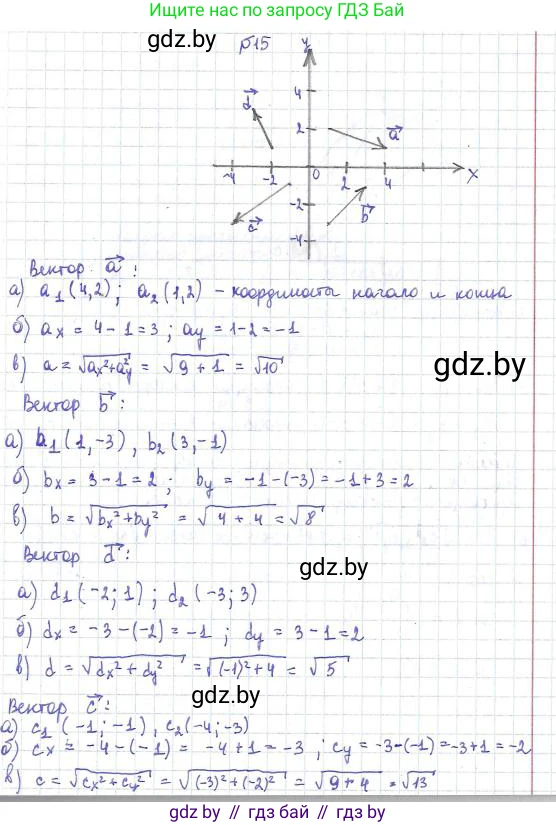 Ищите нас по запросу ГДЗ Бай
gdz.by
№15
y
d⃗
4
2
a⃗
-4 -2 0 2 4 x
-2
-4
c⃗
b⃗
Вектор a⃗ :
а) a₁ (4,2) ; a₂ (1,2) – координаты начало и конца
б) ax = 4 - 1 = 3 ; ay = 1-2 = -1
в) a = √ax²+ay² = √9+1 = √10
gdz.by
Вектор b⃗ :
а) b₁ (1,-3) , b₂ (3,-1)
б) bx = 3-1 = 2 ; by = -1-(-3) = -1+3 = 2
в) b = √bx²+by² = √4+4 = √8
Вектор d⃗ :
gdz.by
а) d₁ (-2; 1) ; d₂ (-3; 3)
б) dx = -3-(-2) = -1 ; dy = 3-1 = 2
в) d = √dx²+dy² = √(-1)²+4 = √5
gdz.by
Вектор c⃗ :
а) c₁ (-1; -1) , c₂(-4; -3)
б) cx = -4-(-1) = -4+1 = -3 ; cy = -3-(-1) = -3+1 = -2
в) c = √cx²+cy² = √(-3)²+(-2)² = √9+4 = √13
gdz.by // гдз бай // gdz.by